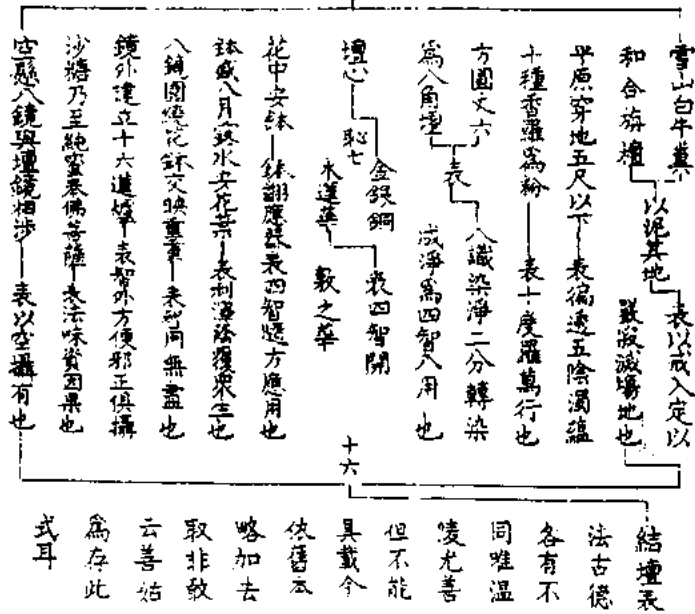 雪山白牛糞
和合旃檀
以泥其地
表以戒入定以
嚴寂滅場地也
平原穿地五尺以下 表徧透五陰濁蘊
十種香羅為粉 表十度羅萬行也
方圓丈六
為八角壇
表
八識染淨二分轉染
成淨為四智八用也
壇心
恥七
金銀銅
木蓮華
表四智開
敷之華
花中安鉢 鉢 應器表四智隨方應用也
鉢盛八月露水安花葉 表利澤 覆衆生也
八鏡圍繞花鉢交映重重 表智用無盡也
鏡外建立十六蓮華 表智外方便邪正俱攝
沙糖乃至純蜜奉佛菩薩 表法味資因果也
空懸八鏡與壇鏡相涉 表以空攝有也
十六
結壇表
法古德
各有不
同唯溫
陵尤善
但不能
具載今
依舊本
略加去
取非敢
云善姑
為存此
式耳